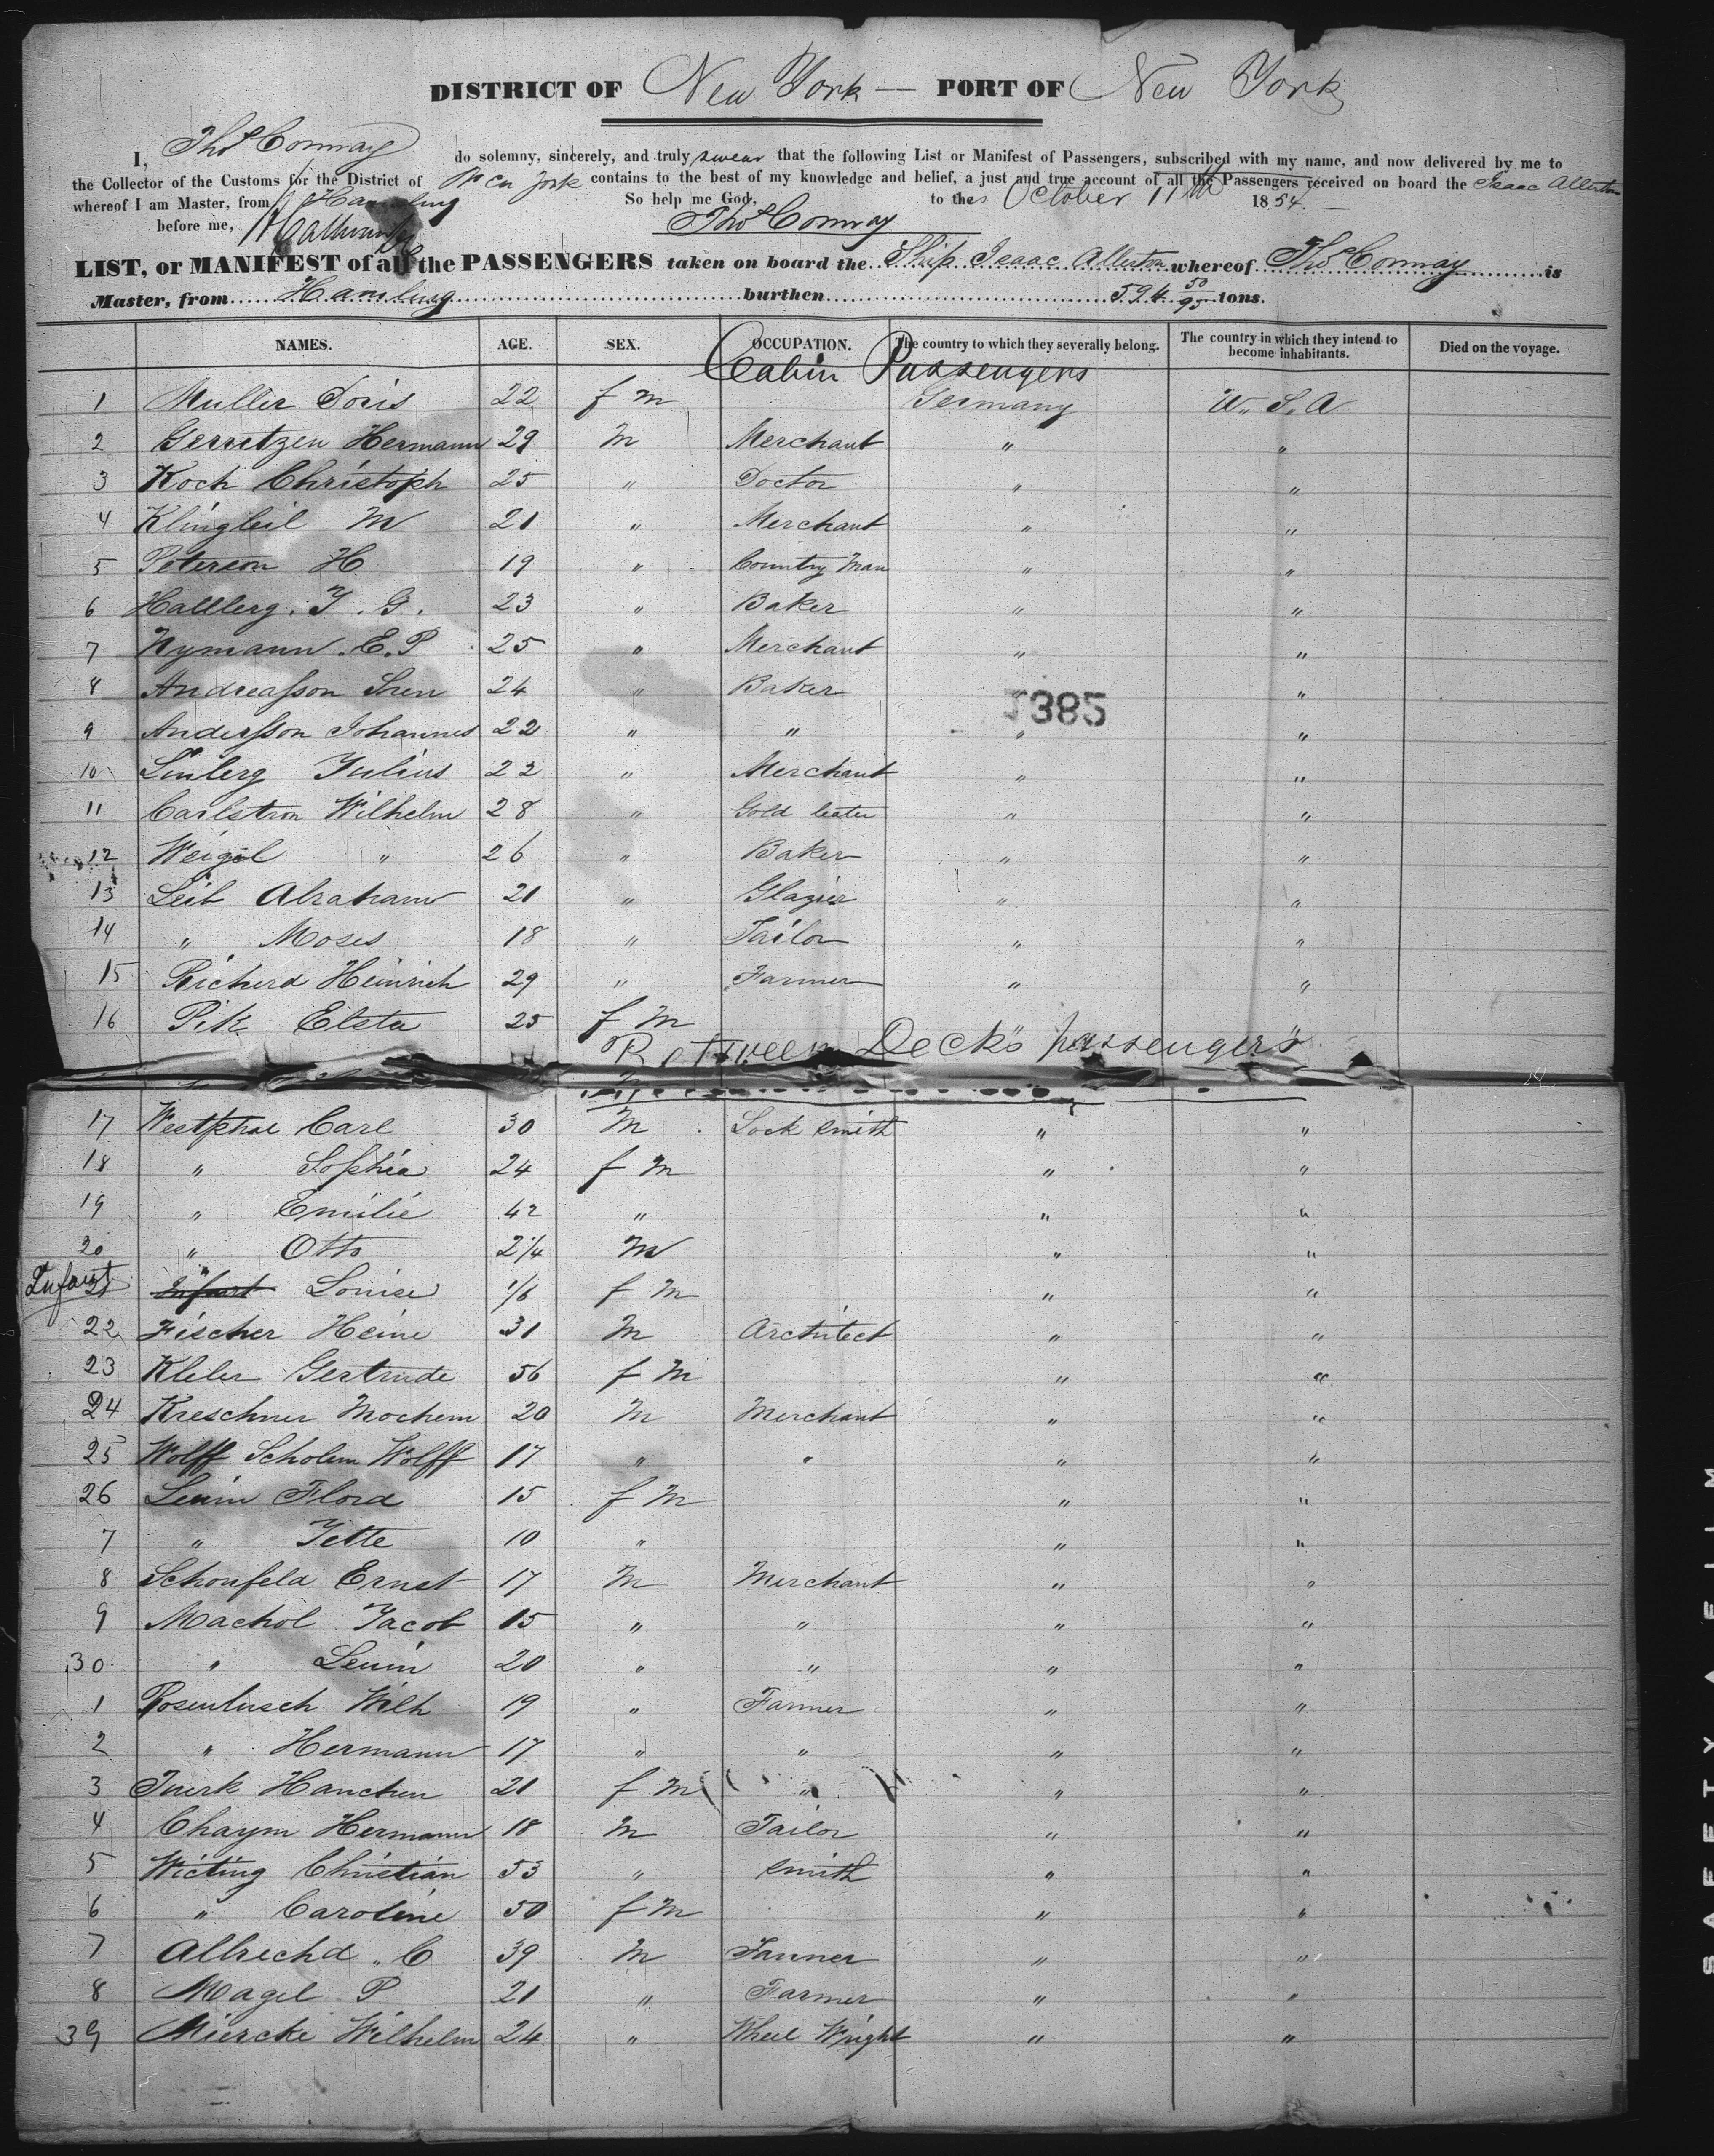 DISTRICT OF New York — PORT OF New York
I, Thos Conway do solemny, sincerely, and truly swear that the following List or Manifest of Passengers, subscribed with my name, and now delivered by me to
the Collector of the Customs for the District of New York contains to the best of my knowledge and belief, a just and true account of all the Passengers received on board the Isaac Allerton
whereof I am Master, from Hamburg So help me God,
to the October 17th 1854.
before me, Thos Conway
LIST, or MANIFEST of all the PASSENGERS taken on board the Ship Isaac Allerton whereof Thos Conway is
Master, from Hamburg burthen 594 50/95 tons.
NAMES. AGE. SEX. OCCUPATION. The country to which they severally belong. The country in which they intend to become inhabitants. Died on the voyage.
Cabin Passengers
1 Muller Doris 22 f m Germany U.S.A
2 Gerretzen Hermann 29 m Merchant " "
3 Koch Christoph 25 " Doctor " "
4 Klingbeil M 21 " Merchant " "
5 Peterson H 19 " Country Man " "
6 Hallberg. J. G. 23 " Baker " "
7 Nymann. E. P 25 " Merchant " "
8 Andreasson Sven 24 " Baker " "
385
9 Andersson Johannes 22 " " " "
10 Linberg Julius 22 " Merchant " "
11 Carlstron Wilhelm 28 " Gold beater " "
12 Weigel " 26 " Baker " "
13 Leib Abraham 21 " Glazier " "
14 " Moses 18 " Tailor " "
15 Richerd Heinrich 29 " Farmer " "
16 Pik Elsta 25 f m
Between Deck's passenger's
17 Westphal Carl 30 m Lock smith " "
18 " Sophia 24 f m " "
19 " Emilie 42 " " "
20 " Otto 2 1/4 m " "
Infant 21 " Infant Louise 1/6 f m " "
22 Fischer Heine 31 m Architect " "
23 Kleber Gertrude 56 f m " "
24 Kreschner Mochem 20 m Merchant " "
25 Wolff Scholem Wolff 17 " " " "
26 Levin Flora 15 f m " "
7 " Jette 10 " " "
8 Schonfeld Ernst 17 m Merchant " "
9 Machol Jacob 15 " " " "
30 " Levin 20 " " " "
1 Rosenbusch Wilh 19 " Farmer " "
2 " Hermann 17 " " " "
3 Tuerk Hanchen 21 f m " " "
4 Chaym Hermann 18 m Tailor " "
5 Wicting Christian 53 " smith " "
6 " Caroline 50 f m " "
7 Albrechd " C 39 m Tanner " "
8 Magel P 21 " Farmer " "
39 Miercke Wilhelm 24 " Wheel Wright " "
SAFETY FILM